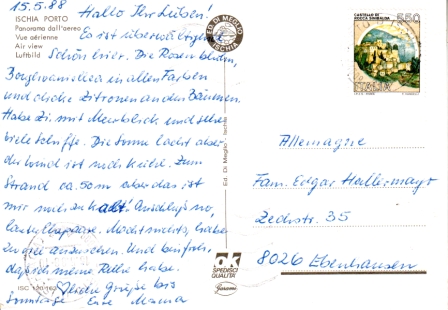 15.5.88
ISCHIA PORTO
Panorama dall'aereo
Vue aérienne
Air view
Luftbild
Hallo Ihr Lieben!
Es ist überwältigend
Schön hier. Die Rosen blühen,
Bougainvillea in allen Farben
und dicke Zitronen an den Bäumen.
Habe Zi. mit Meerblick und sehe
viele Schiffe. Die Sonne lacht aber
der Wind ist noch kühl. Zum
Strand ca. 50 m aber das ist
mir noch zu kalt! Anschluß no,
lauter Ehepaare. Macht nichts, habe
zu die anzusehen. Und bin froh,
daß ich meine Ruhe habe.
Liebe Grüße bis
Sonntag Eure Mama
ISC 190/162
ED. DI MEGLIO
ISCHIA
Ed. Di Meglio - Ischia
ok
SPEDISCI
QUALITA'
CASTELLO DI
ROCCA SINIBALDA
550
ITALIA
Allemagne
Fam. Edgar Hallermayr
Zechstr. 35
8026 Ebenhausen